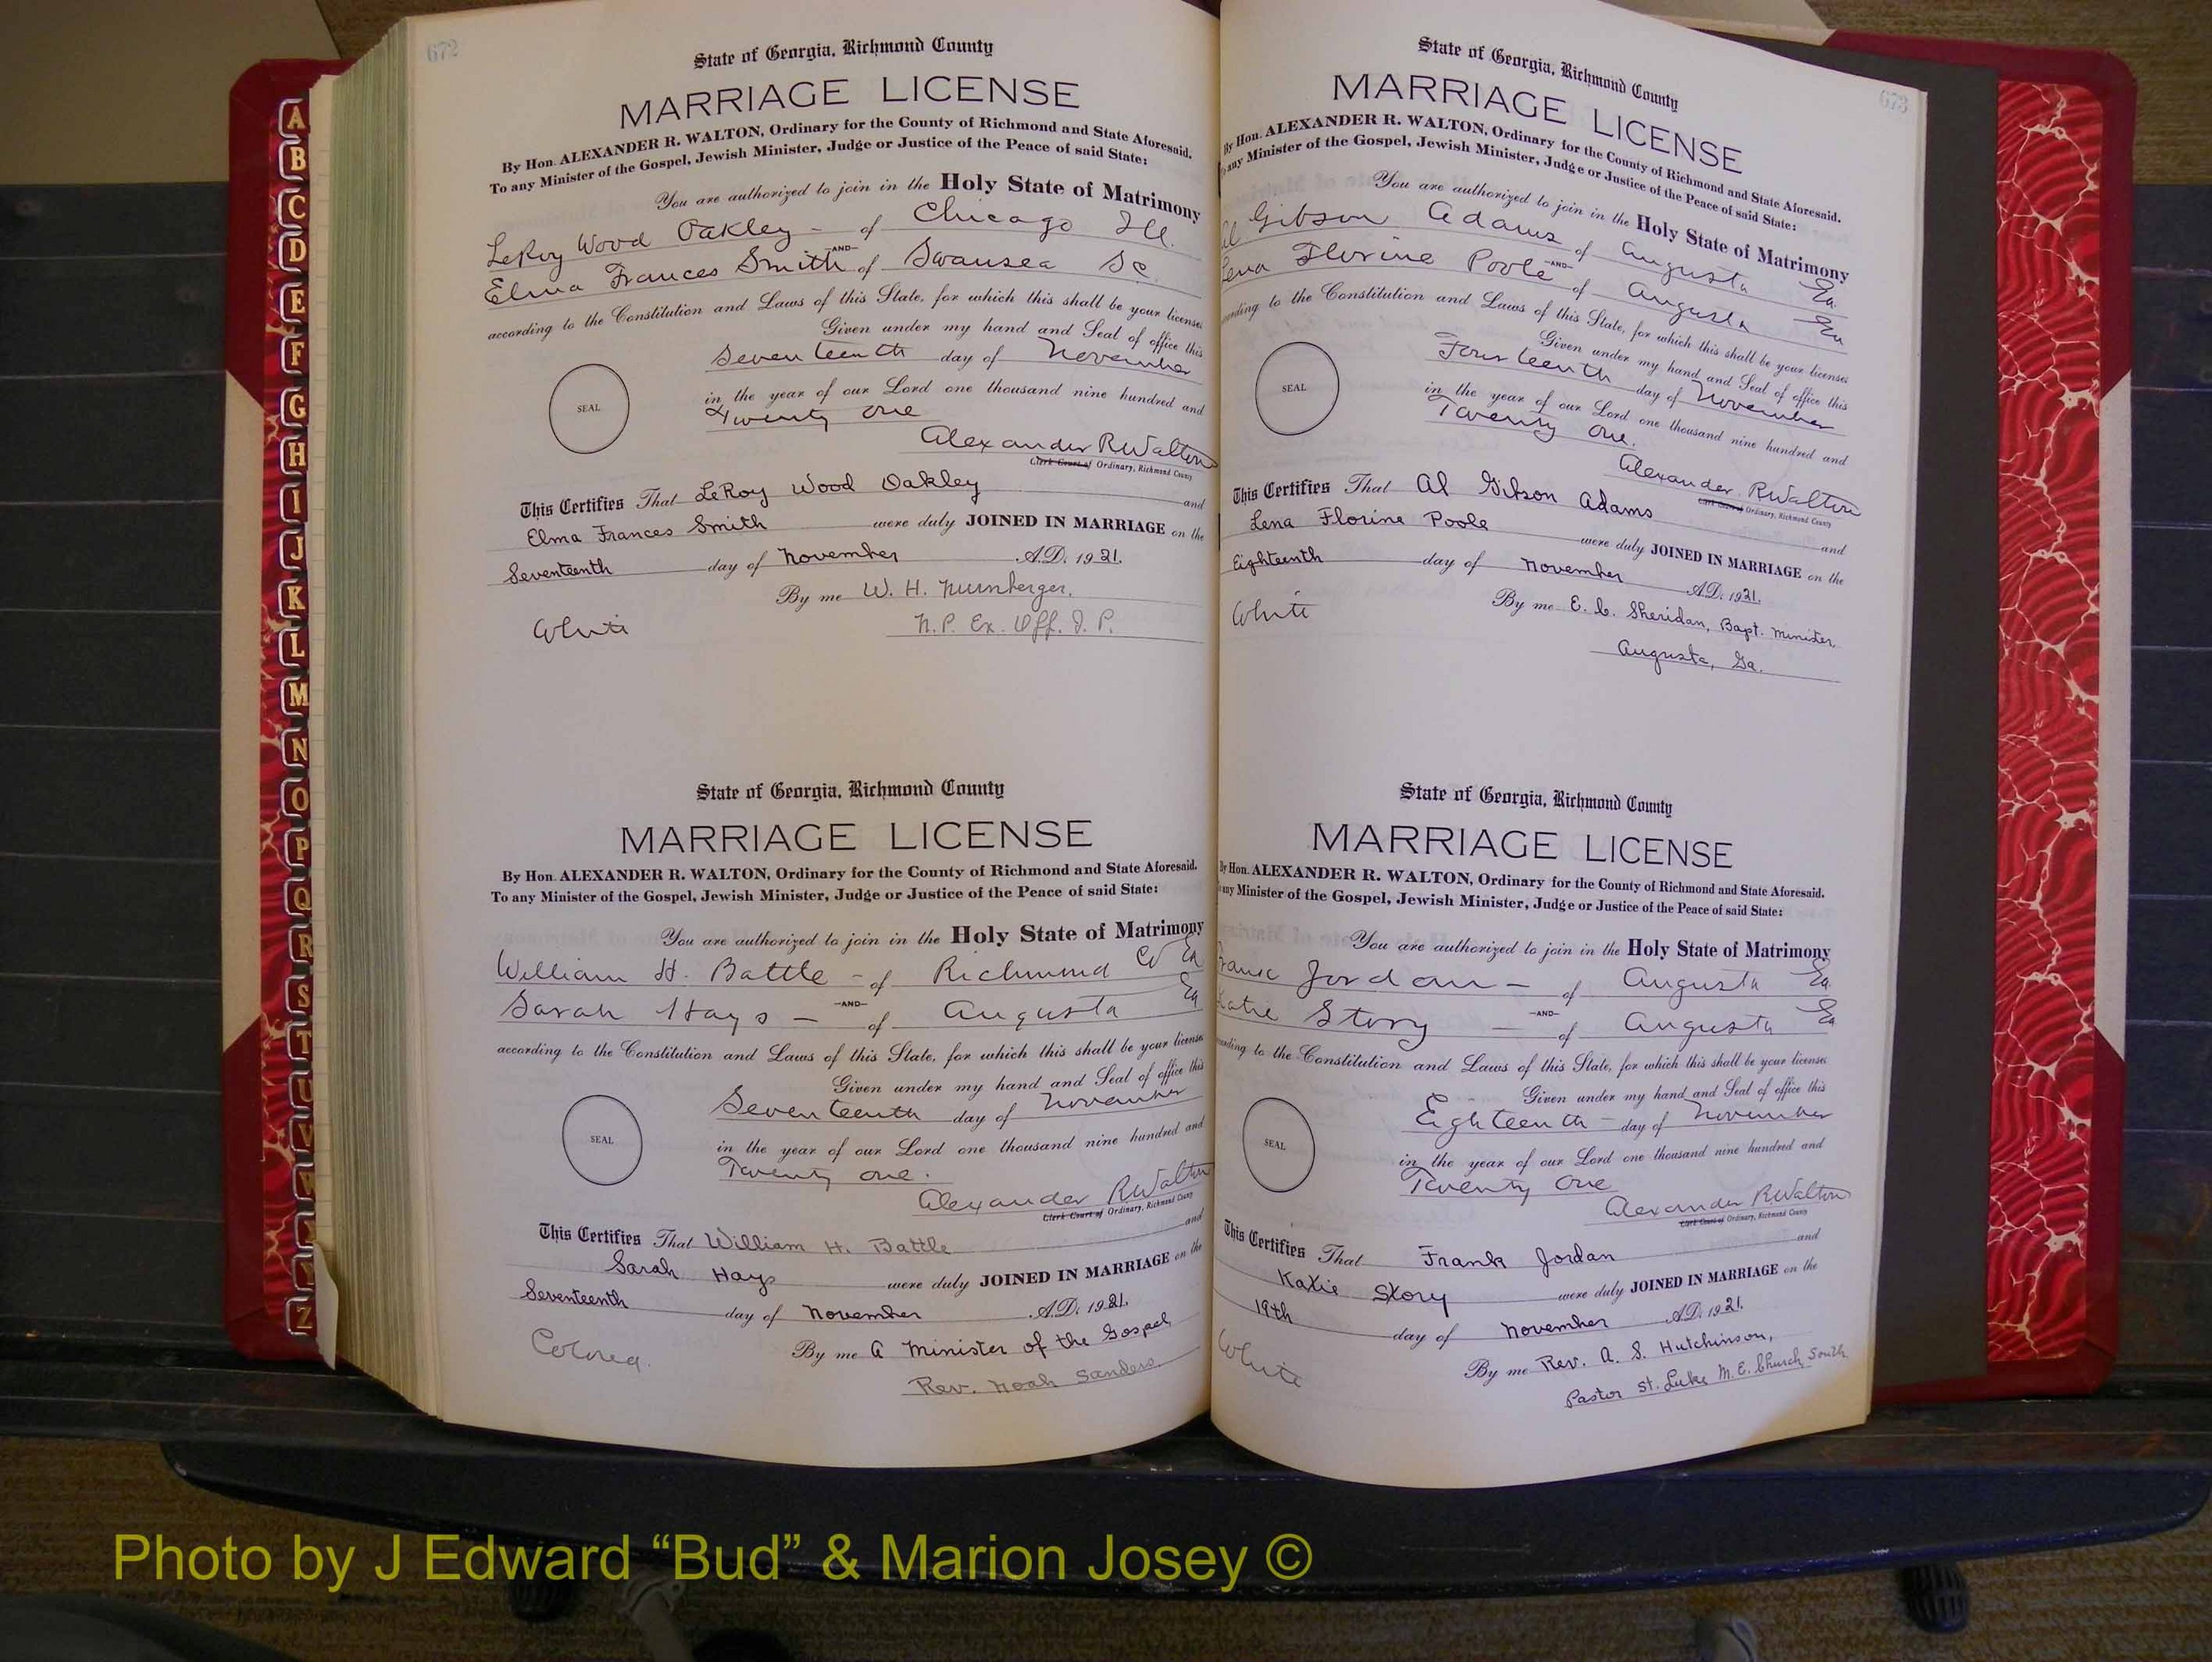 A
B
C
D
E
F
G
H
I
J
K
L
M
N
O
P
Q
R
S
T
U
V
W
Z
672
State of Georgia, Richmond County
MARRIAGE LICENSE
By Hon. ALEXANDER R. WALTON, Ordinary for the County of Richmond and State Aforesaid.
To any Minister of the Gospel, Jewish Minister, Judge or Justice of the Peace of said State:
You are authorized to join in the Holy State of Matrimony
LeRoy Wood Oakley - of Chicago Ill.
-AND-
Elma Frances Smith of Swansea SC
according to the Constitution and Laws of this State, for which this shall be your license
Given under my hand and Seal of office this
Seventeenth day of November
SEAL
in the year of our Lord one thousand nine hundred and
Twenty one
Alexander R Walton
Clerk Court of Ordinary, Richmond County
This Certifies That LeRoy Wood Oakley and
Elma Frances Smith were duly JOINED IN MARRIAGE on the
Seventeenth day of November A.D. 1921.
By me W. H. Nurnberger.
White N.P. Ex. Off. J. P.
State of Georgia, Richmond County
MARRIAGE LICENSE
By Hon. ALEXANDER R. WALTON, Ordinary for the County of Richmond and State Aforesaid.
To any Minister of the Gospel, Jewish Minister, Judge or Justice of the Peace of said State:
You are authorized to join in the Holy State of Matrimony
William H. Battle - of Richmond Co Ga
-AND-
Sarah Hays - of Augusta Ga
according to the Constitution and Laws of this State, for which this shall be your license
Given under my hand and Seal of office this
Seventeenth day of November
SEAL
in the year of our Lord one thousand nine hundred and
Twenty one.
Alexander R Walton
Clerk Court of Ordinary, Richmond County
This Certifies That William H. Battle and
Sarah Hays were duly JOINED IN MARRIAGE on the
Seventeenth day of November A.D. 1921.
Colored. By me A Minister of the Gospel,
Rev. Noah Sanders
673
State of Georgia, Richmond County
MARRIAGE LICENSE
By Hon. ALEXANDER R. WALTON, Ordinary for the County of Richmond and State Aforesaid.
any Minister of the Gospel, Jewish Minister, Judge or Justice of the Peace of said State:
You are authorized to join in the Holy State of Matrimony
Al Gibson Adams of Augusta Ga.
-AND-
Lena Florine Poole of Augusta Ga
according to the Constitution and Laws of this State, for which this shall be your license
Given under my hand and Seal of office this
Fourteenth day of November
SEAL
in the year of our Lord one thousand nine hundred and
Twenty One.
Alexander R Walton
Clerk Court of Ordinary, Richmond County
This Certifies That Al Gibson Adams and
Lena Florine Poole were duly JOINED IN MARRIAGE on the
Eighteenth day of November A.D. 1921.
White By me E. C. Sheridan, Bapt. Minister,
Augusta, Ga.
State of Georgia, Richmond County
MARRIAGE LICENSE
By Hon. ALEXANDER R. WALTON, Ordinary for the County of Richmond and State Aforesaid.
any Minister of the Gospel, Jewish Minister, Judge or Justice of the Peace of said State:
You are authorized to join in the Holy State of Matrimony
Frank Jordan - of Augusta Ga.
-AND-
Katie Story - of Augusta Ga
according to the Constitution and Laws of this State, for which this shall be your license
Given under my hand and Seal of office this
Eighteenth - day of November
SEAL
in the year of our Lord one thousand nine hundred and
Twenty One
Alexander R Walton
Clerk Court of Ordinary, Richmond County
This Certifies That Frank Jordan and
Katie Story were duly JOINED IN MARRIAGE on the
19th day of November A.D. 1921.
White By me Rev. A. S. Hutchinson,
Pastor St. Luke M.E. Church South
Photo by J Edward “Bud” & Marion Josey ©